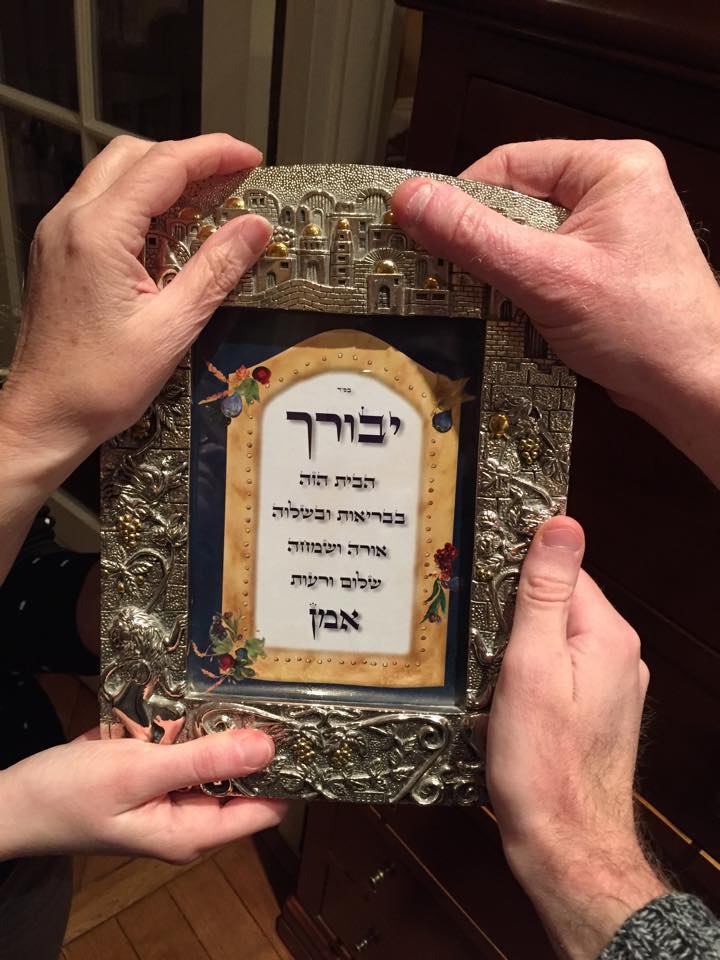 בס"ד
יבורך
הבית הזה
בבריאות ובשלוה
אורה ושמחה
שלום ורעות
אמן